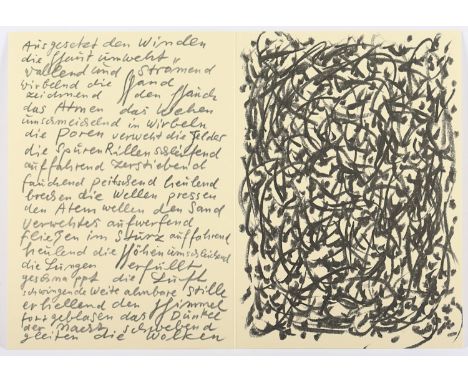 Ausgesetzt den Winden
die Haut umweht
wallend und strömend
wirbelnd die Hand
zeichnend den Hauch
das Atmen das Wehen
umschmeissend in Wirbeln
die Poren verweht die Felder
die Spuren Rillen schleifend
auffahrend zerstiebend
fauchend peitschend heulend
brechen die Wellen pressen
den Atem wellen den Sand
verwehtes aufwerfend
fließen im Sturz auffahrend
heulend die Höhen umschleichend
die Lungen erfüllt
geschnappt die Luft
schwingende Weite ahnbare Stille
erhellend den Himmel
fortgeblasen das Dunkel
der Nacht schwebend
gleiten die Wolken